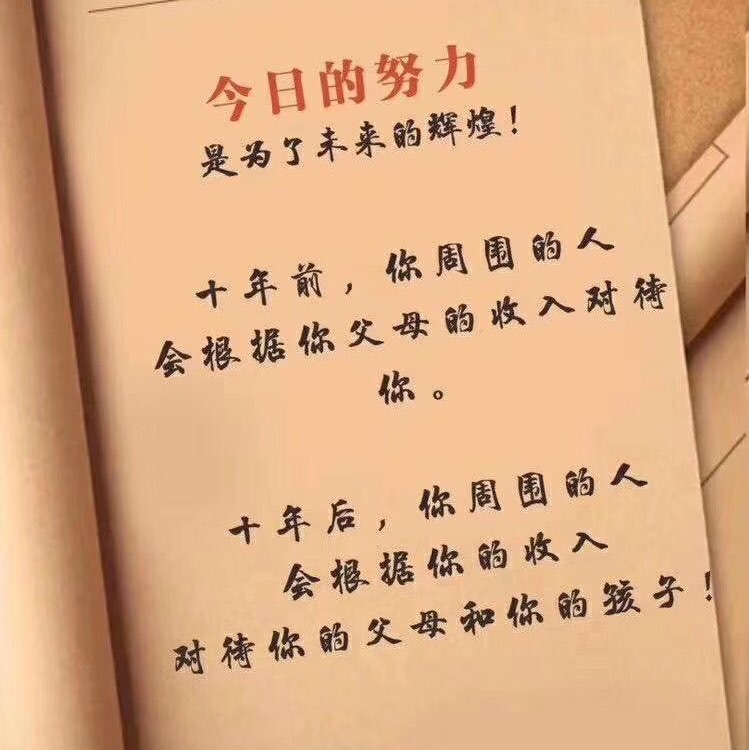 今日的努力
是为了未来的辉煌！
十年前，你周围的人
会根据你父母的收入对待
你。
十年后，你周围的人
会根据你的收入
对待你的父母和你的孩子！